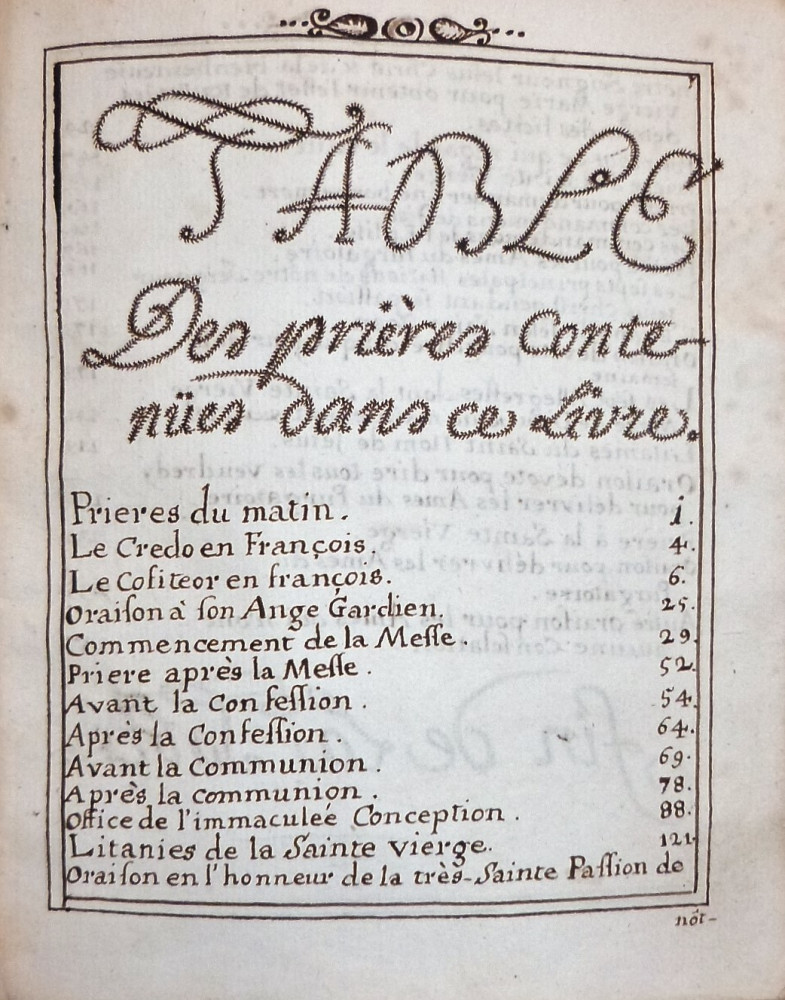 TABLE
Des prières Conte-
nües dans ce Livre.
Prieres du matin. 1.
Le Credo en François. 4.
Le Cõfiteor en françois. 6.
Oraiſon à ſon Ange Gardien. 25.
Commencement de la Meſſe. 29.
Priere après la Meſſe. 52.
Avant la Confeſſion. 54.
Après la Confeſſion. 64.
Avant la Communion. 69.
Après la communion. 78.
Office de l'immaculeé Conception. 88.
Litanies de la Sainte vierge. 121
Oraiſon en l'honneur de la très-Sainte Paſſion de
nôt-